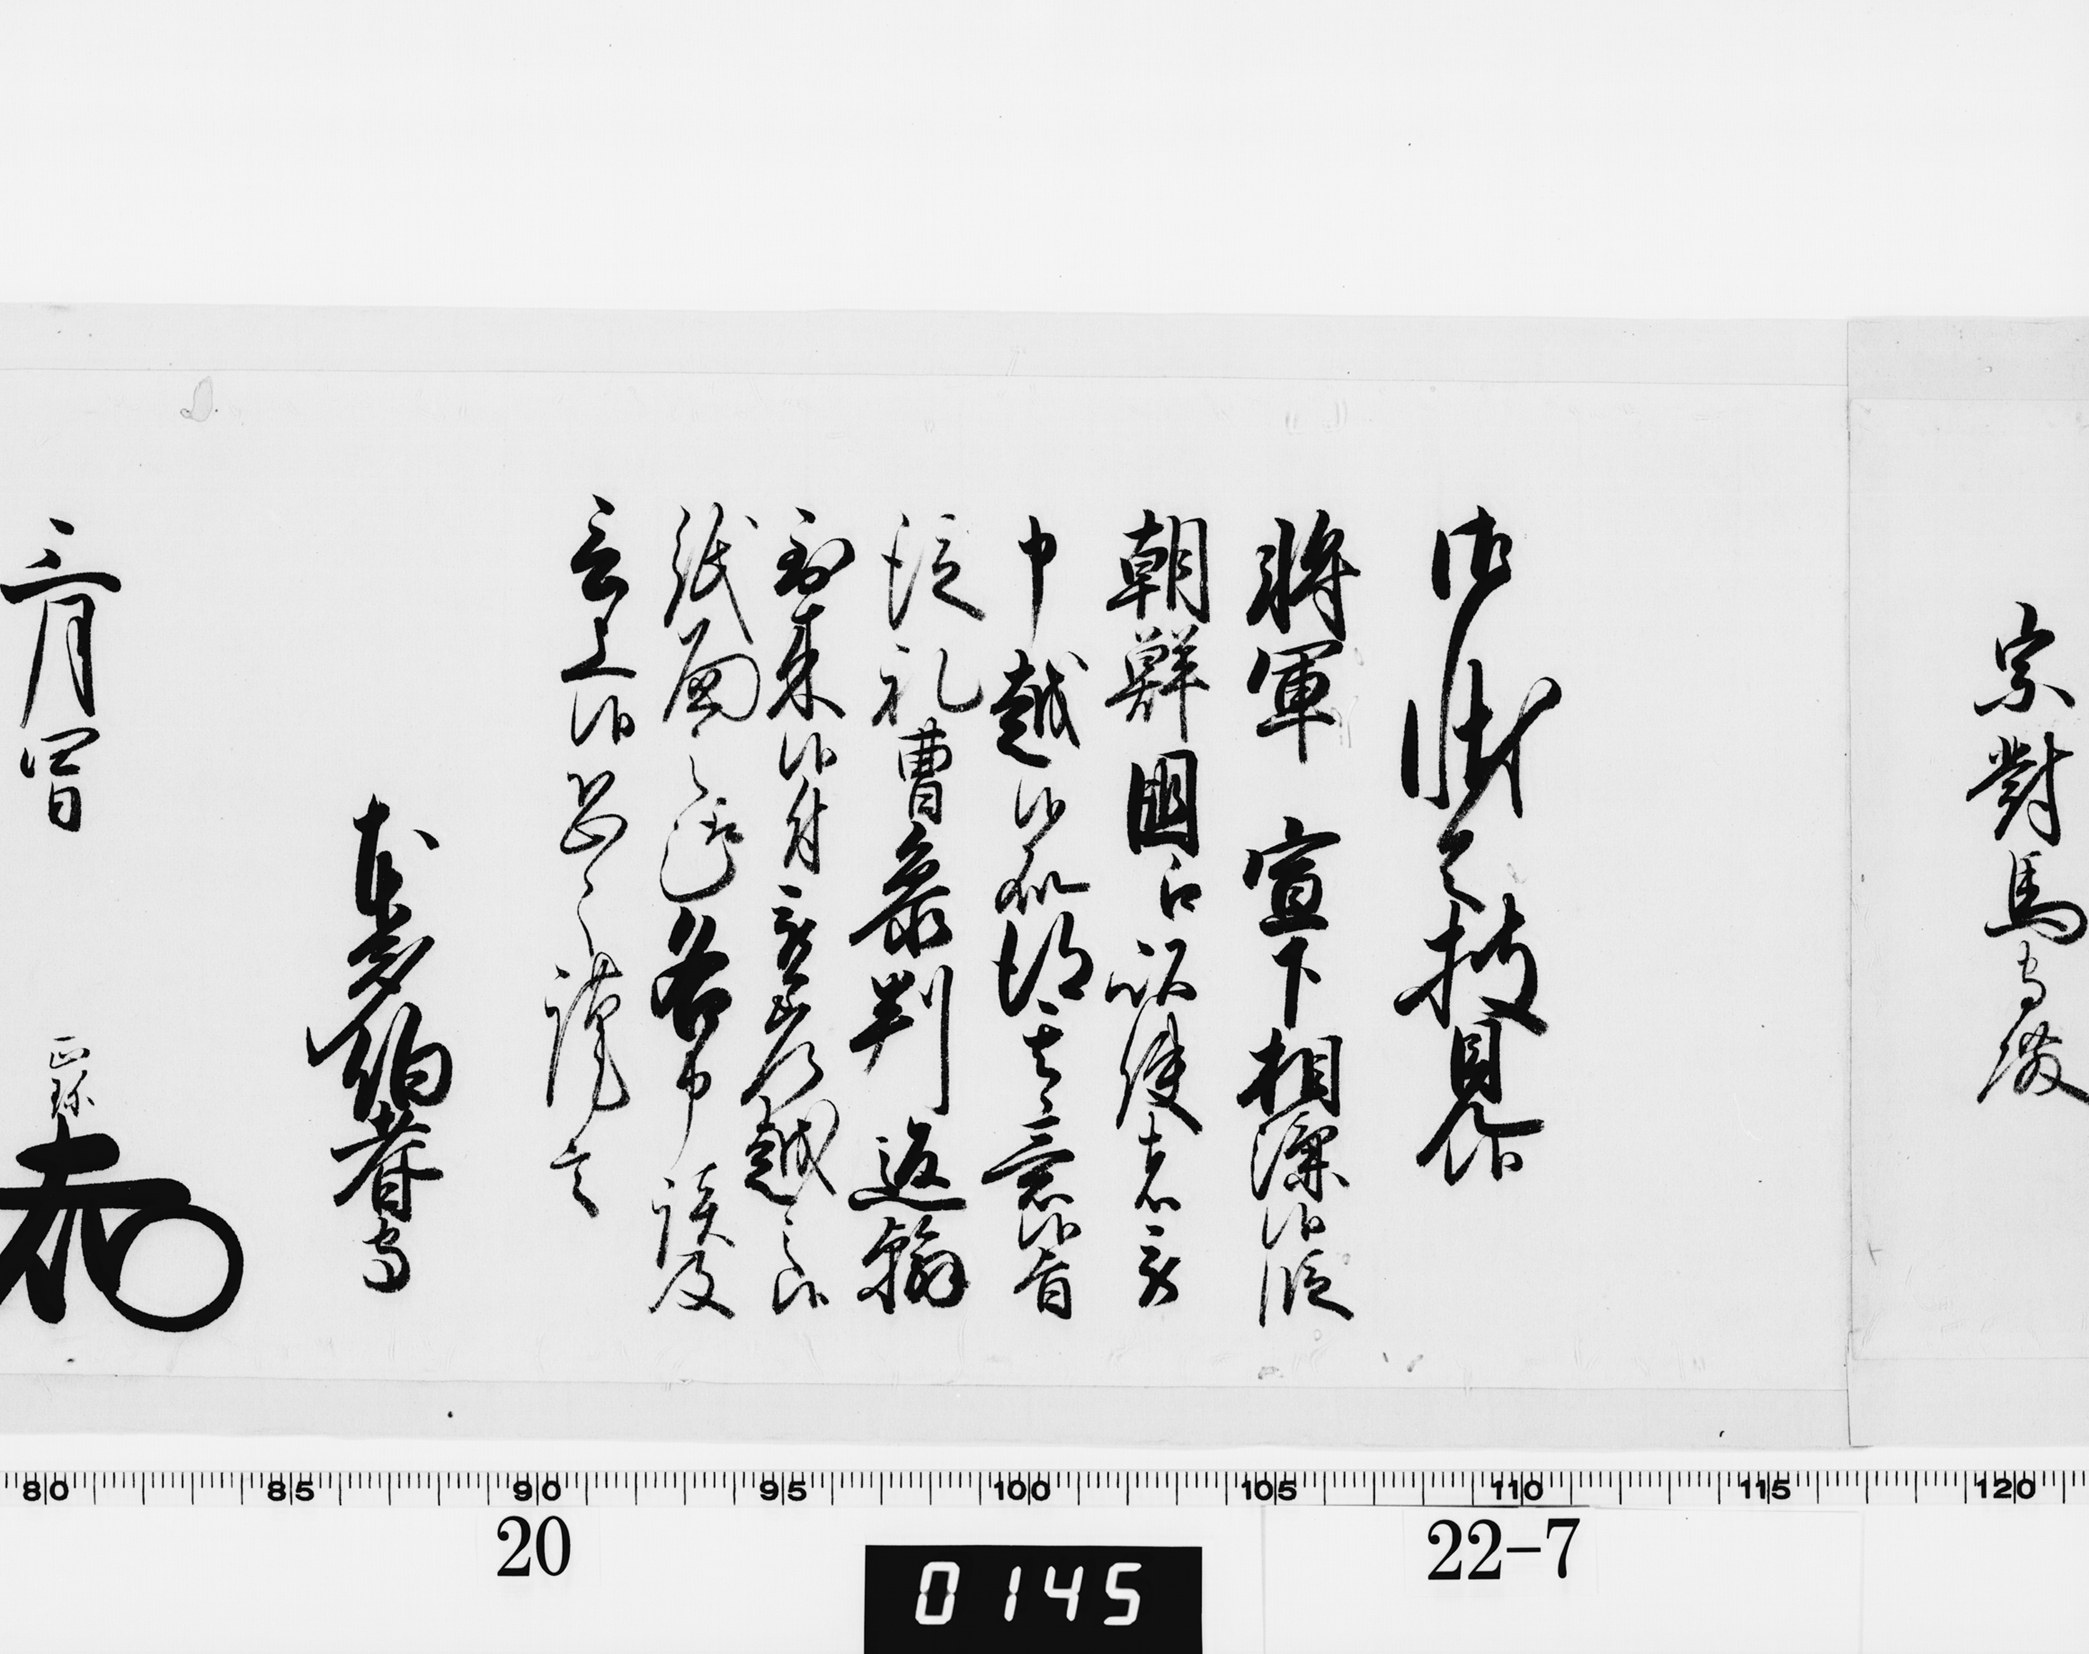 宗對馬守殿
御状令披見候
將軍 宣下相濟候段
朝鮮國江以使者被
申越候處得其意候旨
從礼曹参判返翰
到来候付被差越之候
紙面之趣各申談及
言上候恐々謹言
本多伯耆守
三月四日 正珍
80 85 90 95 100 105 110 115 120
20 22-7
0145